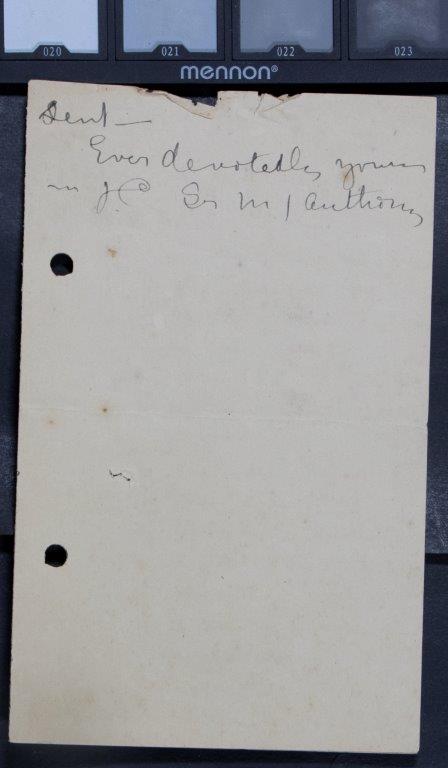 020 021 022 023
mennon®
Sent —
Ever devotedly yours
in J.C. Sr M / Anthony